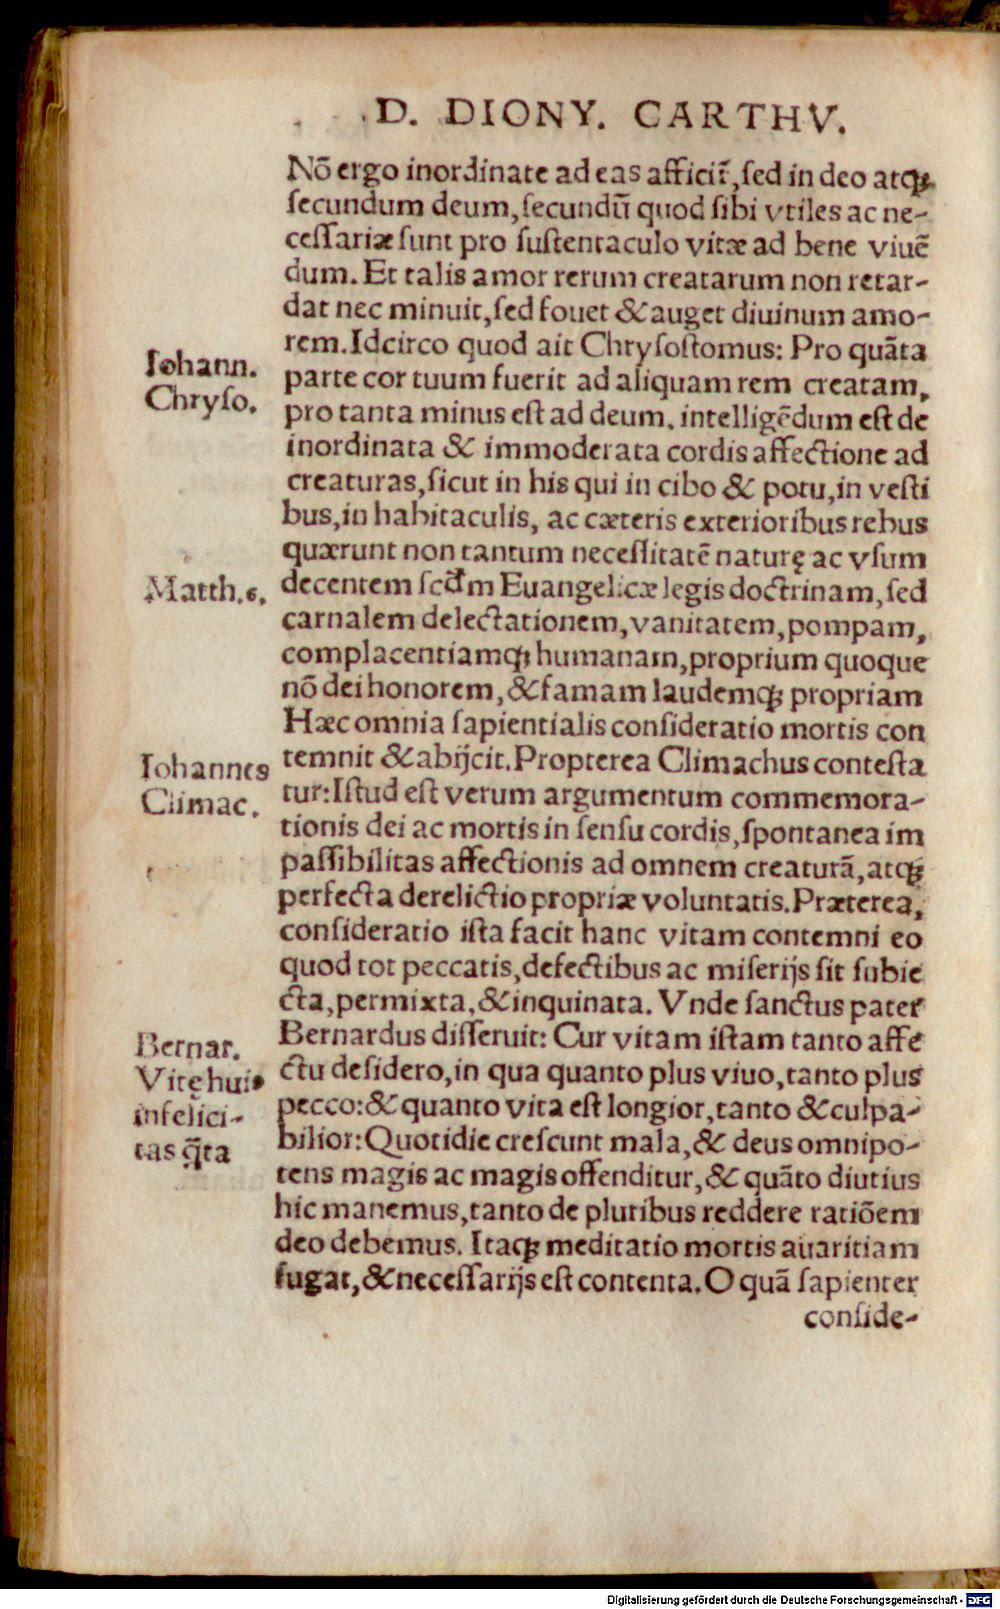 D. DIONY. CARTHV.
Nõ ergo inordinate ad eas afficit̃, ſed in deo atqꝫ
ſecundum deum, ſecundũ quod ſibi vtiles ac ne-
ceſſariæ ſunt pro ſuſtentaculo vitæ ad bene viuẽ
dum. Et talis amor rerum creatarum non retar-
dat nec minuit, ſed fouet & auget diuinum amo-
rem. Idcirco quod ait Chryſoſtomus: Pro quãta
parte cor tuum fuerit ad aliquam rem creatam,
pro tanta minus eſt ad deum, intelligẽdum eſt de
inordinata & immoderata cordis affectione ad
creaturas, ſicut in his qui in cibo & potu, in veſti
bus, in habitaculis, ac cæteris exterioribus rebus
quærunt non tantum neceſſitatẽ naturę ac vſum
decentem ſcd̃m Euangelicæ legis doctrinam, ſed
carnalem delectationem, vanitatem, pompam,
complacentiamqꝫ humanam, proprium quoque
nõ dei honorem, & famam laudemqꝫ propriam
Hæc omnia ſapientialis conſideratio mortis con
temnit & abijcit. Propterea Climachus conteſta
tur: Iſtud eſt verum argumentum commemora-
tionis dei ac mortis in ſenſu cordis, ſpontanea im
paſſibilitas affectionis ad omnem creaturã, atqꝫ
perfecta derelictio propriæ voluntatis. Præterea,
conſideratio iſta facit hanc vitam contemni eo
quod tot peccatis, defectibus ac miſerijs ſit ſubie
cta, permixta, & inquinata. Vnde ſanctus pater
Bernardus diſſeruit: Cur vitam iſtam tanto affe
ctu deſidero, in qua quanto plus viuo, tanto plus
pecco: & quanto vita eſt longior, tanto & culpa-
bilior: Quotidie creſcunt mala, & deus omnipo-
tens magis ac magis offenditur, & quãto diutius
hic manemus, tanto de pluribus reddere ratiõem
deo debemus. Itaqꝫ meditatio mortis auaritiam
fugat, & neceſſarijs eſt contenta. O quã ſapienter
conſide-
Iohann.
Chryſo.
Matth.6.
Iohannes
Climac.
Bernar.
Vitę hui⁹
infelici-
tas q̃ta
Digitalisierung gefördert durch die Deutsche Forschungsgemeinschaft - DFG